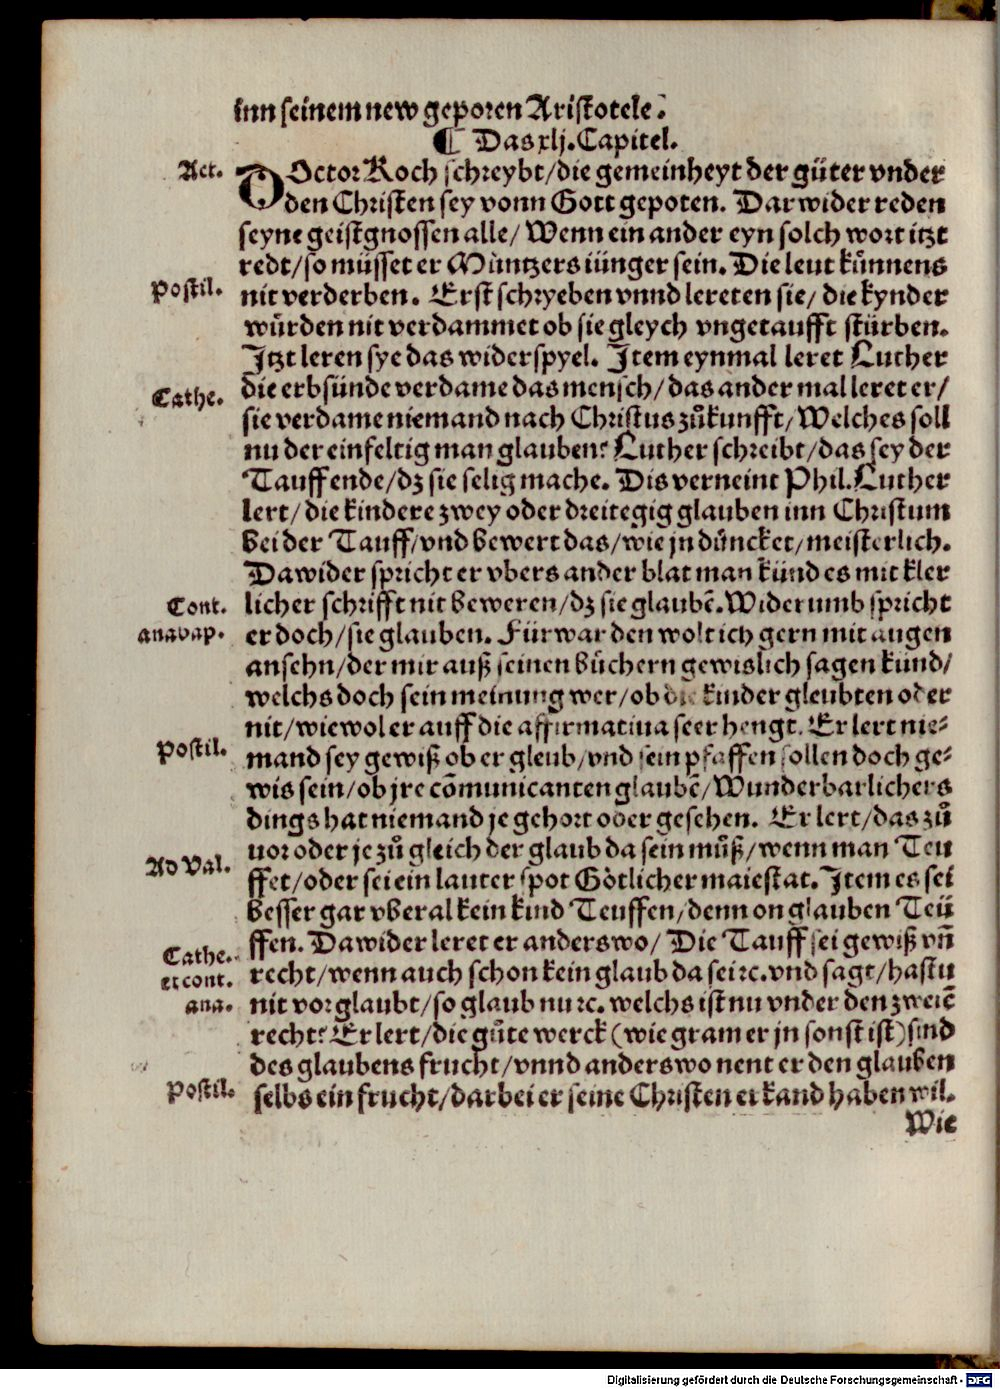 inn seinem new geporen Aristotele.
¶ Das xlj. Capitel.
Act.
DOctor Roch schreybt/die gemeinheyt der gůter vnder
den Christen sey vonn Gott gepoten. Darwider reden
seyne geistgnossen alle/ Wenn ein ander eyn solch wort itzt
redt/so můsset er Můntzers iünger sein. Die leut kůnnens
Postil.
nit verderben. Erst schryeben vnnd lereten sie/ die kynder
wůrden nit verdammet ob sie gleych vngetaufft stürben.
Itzt leren sye das widerspyel. Item eynmal leret Luther
Cathe.
die erbsünde verdame das mensch/das ander mal leret er/
sie verdame niemand nach Christus zůkunfft/Welches soll
nu der einfeltig man glauben? Luther schreibt/das sey der
Tauff ende/dz sie selig mache. Dis verneint Phil. Luther
lert/die kindere zwey oder dreitegig glauben inn Christum
bei der Tauff/vnd bewert das/wie jn důncket/meisterlich.
Dawider spricht er vbers ander blat man kůnd es mit kler
Cont.
anabap.
licher schrifft nit beweren/dz sie glaubē. Widerumb spricht
er doch/sie glauben. Fürwar den wolt ich gern mit augen
ansehn/der mir auß seinen bůchern gewislich sagen kůnd/
welchs doch sein meinung wer/ob die kinder gleubten oder
nit/wiewol er auff die affirmatiua seer hengt. Er lert nie-
Postil.
mand sey gewiß ob er gleub/vnd sein pfaffen sollen doch ge-
wis sein/ob jre cōmunicanten glaubē/Wunderbarlichers
dings hat niemand je gehort oder gesehen. Er lert/das zů
Ad Val.
uor oder je zů gleich der glaub da sein můß/wenn man Teu
ffet/oder sei ein lauter spot Götlicher maiestat. Item es sei
besser gar vberal kein kind Teuffen/denn on glauben Teü
Cathe.
et cont.
ana.
ffen. Dawider leret er anderswo/ Die Tauff sei gewiß vn̄
recht/wenn auch schon kein glaub da sei ꝛc. vnd sagt/hastu
nit vor glaubt/so glaub nu ꝛc. welchs ist nu vnder den zweiē
recht? Er lert/die gůte werck (wie gram er jn sonst ist) sind
des glaubens frucht/vnnd anderswo nent er den glauben
Postil.
selbs ein frucht/darbei er seine Christen erkand haben wil.
Wie
Digitalisierung gefördert durch die Deutsche Forschungsgemeinschaft - DFG